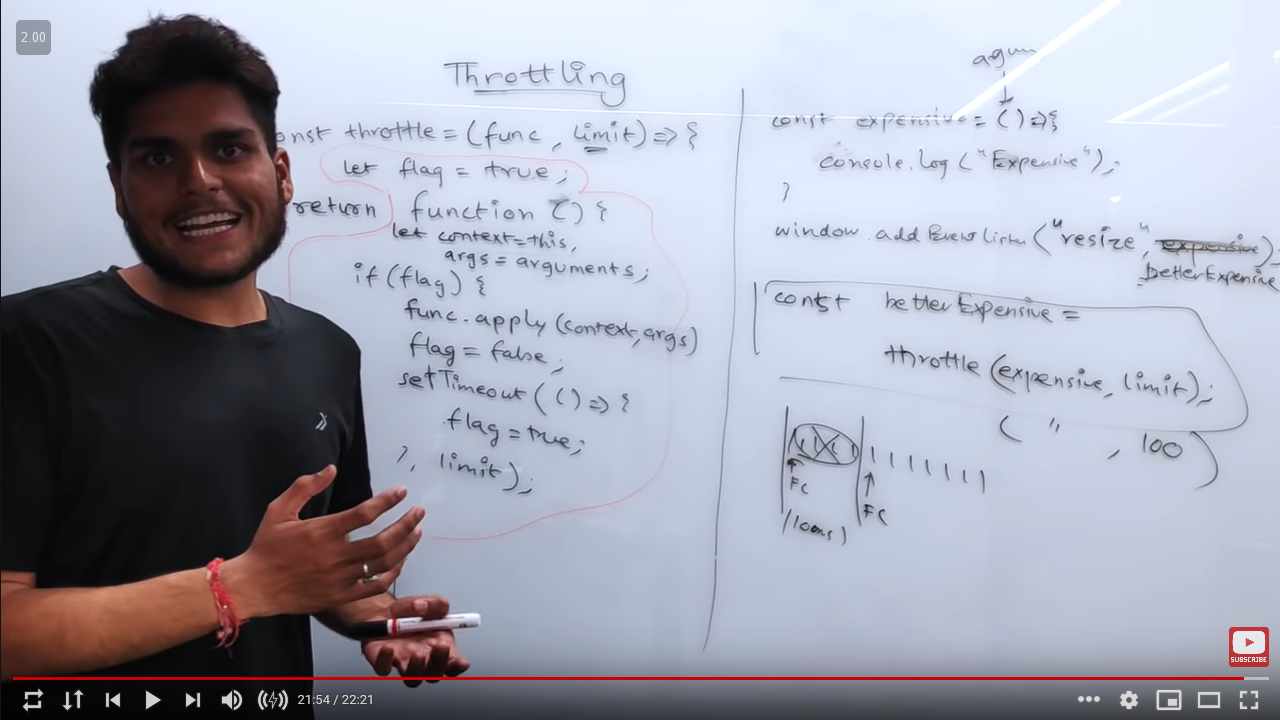 2.00
Throttling
const throttle = (func, limit) => {
let flag = true;
return function () {
let context = this,
args = arguments;
if (flag) {
func.apply(context, args)
flag = false;
setTimeout(() => {
flag = true;
}, limit);
const expensive = () => {
console.log("Expensive");
}
window.addEventListner("resize", expensive)
betterExpensive
const betterExpensive =
throttle(expensive, limit);
( " , 100 )
FC
FC
(100ms)
SUBSCRIBE
21:54 / 22:21